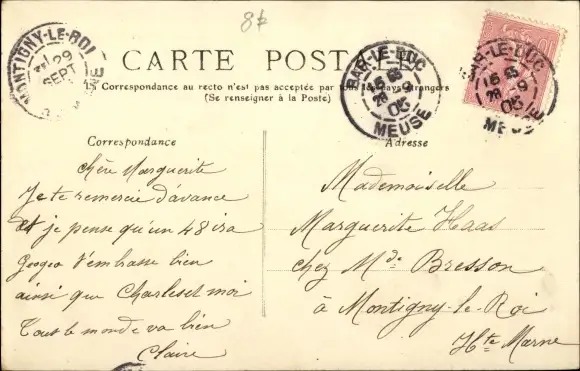 8k
MONTIGNY-LE-ROI
29
SEPT
MARNE
CARTE POSTALE
La Correspondance au recto n'est pas acceptée par tous les pays étrangers
(Se renseigner à la Poste)
BAR-LE-DUC
28 9
05
MEUSE
BAR-LE-DUC
28 9
05
MEUSE
Correspondance
Adresse
Chère Marguerite
Je te remercie d'avance
et je pense qu'un 48 ira
Georges t'embrasse bien
ainsi que Charles et moi
Tout le monde va bien
Claire
Mademoiselle
Marguerite Haas
chez Mde Bresson
à Montigny-le-Roi
Hte Marne